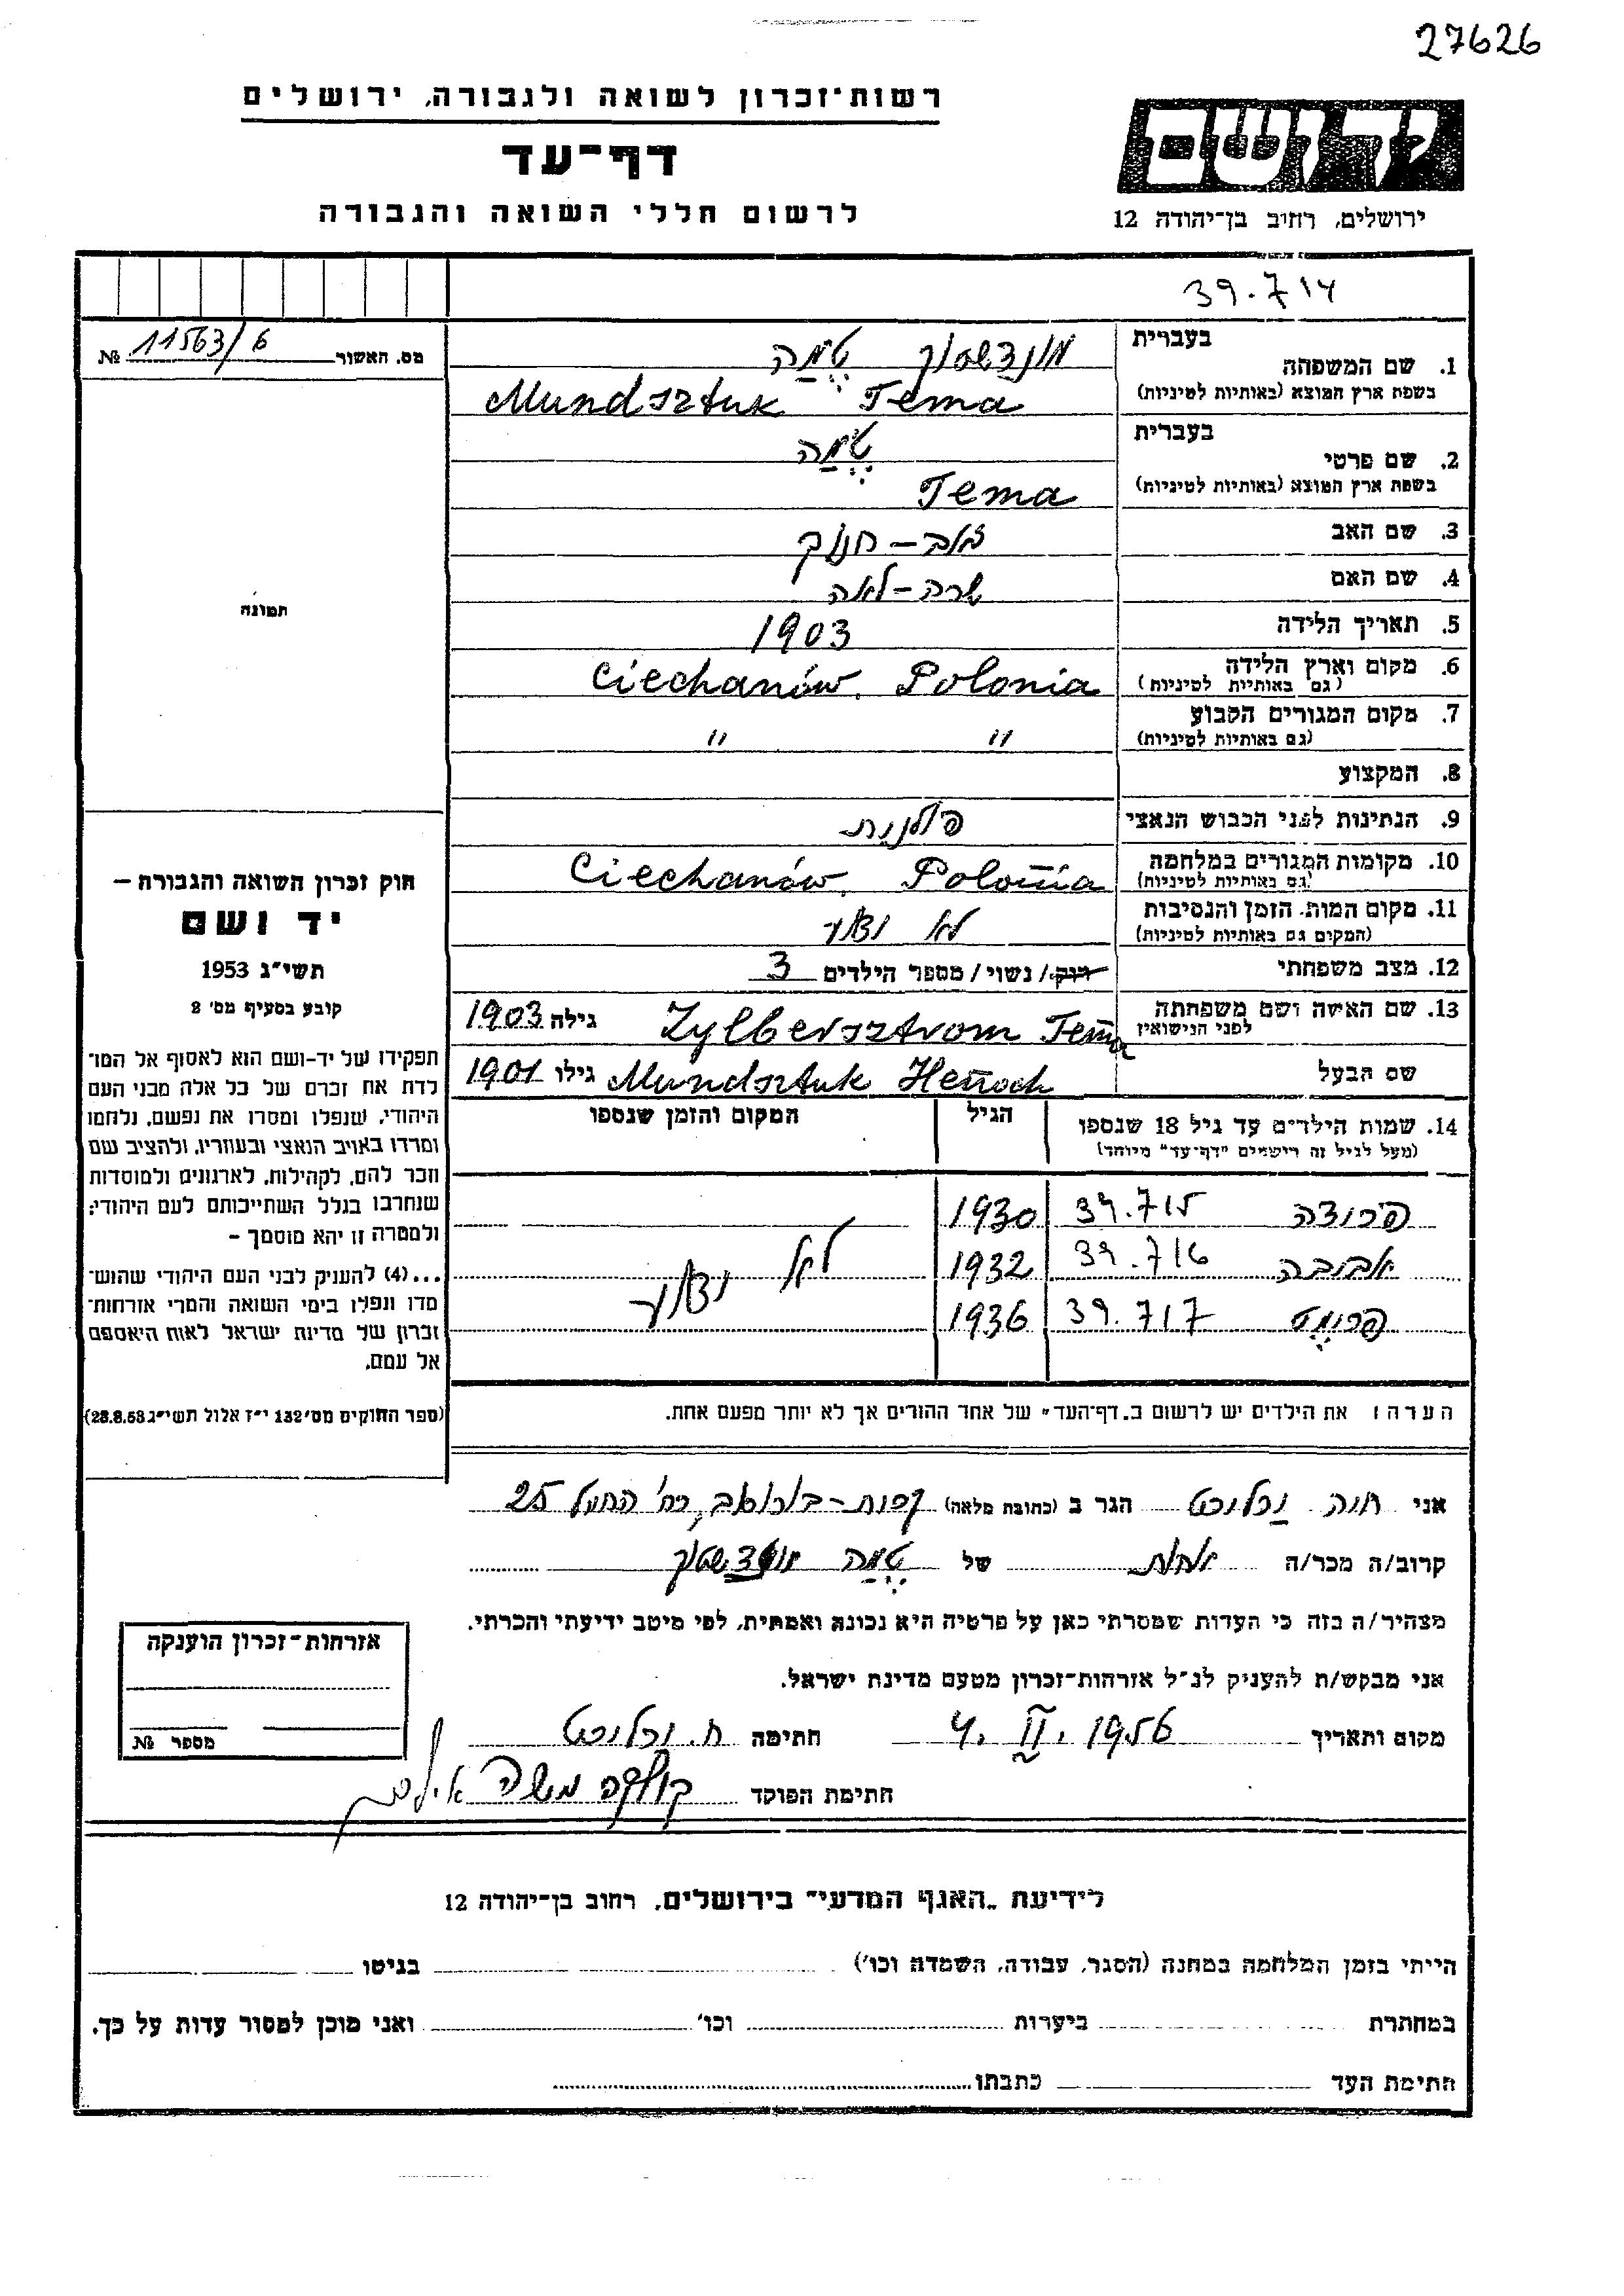 27626
רשות־זכרון לשואה ולגבורה, ירושלים
דף־עד
לרשום חללי השואה והגבורה
יד ושם
ירושלים, רחוב בן־יהודה 12
39.714
מס. האשור 11563/6 №
בעברית
1. שם המשפחה מונדשטוק טמה
בשפת ארץ המוצא (באותיות לטיניות) Mundsztuk Tema
בעברית
2. שם פרטי טמה
בשפת ארץ המוצא (באותיות לטיניות) Tema
3. שם האב זאב - חנוך
4. שם האם שרה - לאה
5. תאריך הלידה 1903
6. מקום וארץ הלידה Ciechanów, Polonia
(גם באותיות לטיניות)
7. מקום המגורים הקבוע " "
(גם באותיות לטיניות)
8. המקצוע
9. הנתינות לפני הכבוש הנאצי פולנית
10. מקומות המגורים במלחמה Ciechanów, Polonia
(גם באותיות לטיניות)
11. מקום המות, הזמן והנסיבות לא ידוע
(המקום גם באותיות לטיניות)
12. מצב משפחתי רוק / נשוי / מספר הילדים 3
13. שם האשה ושם משפחתה Zylbersztrom Tema גילה 1903
לפני הנישואין
שם הבעל Mundsztuk Henoch גילו 1901
14. שמות הילדים עד גיל 18 שנספו הגיל המקום והזמן שנספו
(מעל לגיל זה רישמים "דף־עד" מיוחד)
39.715 1930
אביבה 39.716 1932 לא ידוע
פרומט 39.717 1936
הערה: את הילדים יש לרשום ב"דף־העד" של אחד ההורים אך לא יותר מפעם אחת.
תמונה
חוק זכרון השואה והגבורה –
יד ושם
תשי"ג 1953
קובע בסעיף מס' 2
תפקידו של יד-ושם הוא לאסוף אל המו־
לדת את זכרם של כל אלה מבני העם
היהודי, שנפלו ומסרו את נפשם, נלחמו
ומרדו באויב הנאצי ובעוזריו, ולהציב שם
וזכר להם, לקהילות, לארגונים ולמוסדות
שנחרבו בגלל השתייכותם לעם היהודי;
ולמטרה זו יהא מוסמך –
...(4) להעניק לבני העם היהודי שהוש־
מדו ונפלו בימי השואה והמרי אזרחות־
זכרון של מדינת ישראל לאות היאספם
אל עמם.
(ספר החוקים מס' 132 י"ז אלול תשי"ג 28.8.53)
אני חוה הגר ב (כתובת מלאה) 25
קרוב/ה מכר/ה אחות של טמה מונדשטוק
מצהיר/ה בזה כי העדות שמסרתי כאן על פרטיה היא נכונה ואמתית, לפי מיטב ידיעתי והכרתי.
אני מבקש/ת להעניק לנ"ל אזרחות־זכרון מטעם מדינת ישראל.
מקום ותאריך 4. II. 1956 חתימה ח.
חתימת הפוקד משה
אזרחות־זכרון הוענקה
מספר №
לידיעת "האגף המדעי" בירושלים, רחוב בן־יהודה 12
הייתי בזמן המלחמה במחנה (הסגר, עבודה, השמדה וכו') בגיטו
במחתרת ביערות וכו' ואני מוכן למסור עדות על כך.
חתימת העד כתבתו